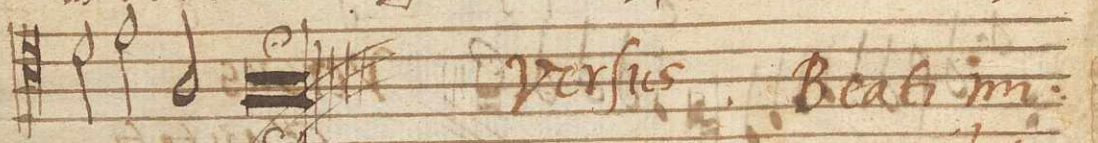 Versus. Beati im: